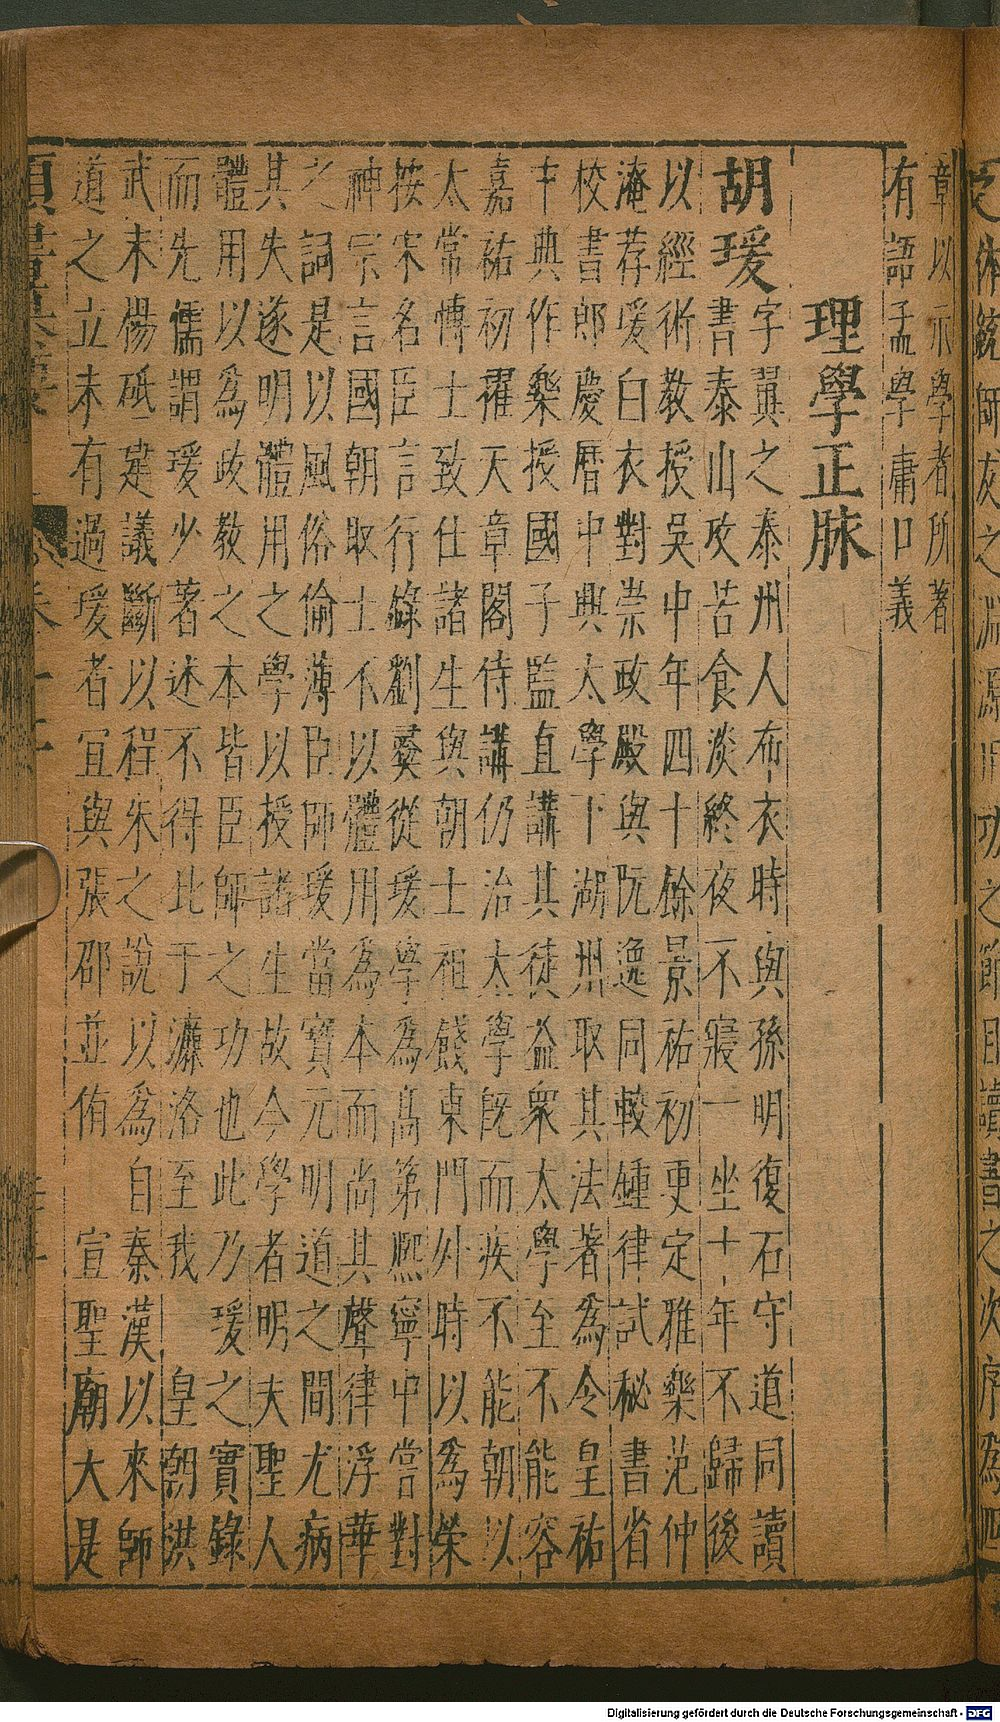 章以示學者所著
有語孟學庸口義
理學正脉
胡瑗字翼之泰州人布衣時與孫明復石守道同讀
書泰山攻苦食淡終夜不寢一坐十年不歸後
以經術教授吳中年四十餘景祐初更定雅樂范仲
淹荐爰白衣對崇政殿與阮逸同較鍾律試秘書省
校書郎慶曆中興太學下湖州取其法著為令皇祐
中典作樂授國子監直講其徒益衆太學至不能容
嘉祐初擢天章閣待講仍治太學旣而疾不能朝以
太常博士致仕諸生與朝士祖餞東門外時以為榮
按宋名臣言行錄劉彛從瑗學為高第熈寧中嘗對
神宗言國朝取士不以體用為本而尚其聲律浮華
之詞是以風俗偷薄臣師瑗當寶元明道之間尤病
其失遂明體用之學以授諸生故今學者明夫聖人
體用以為政教之本皆臣師之功也此乃瑗之實錄
而先儒謂瑗少著述不得比于濂洛至我 皇朝洪
武末楊砥建議斷以程朱之說以為自秦漢以來師
道之立未有過瑗者宜與張邵並侑 宣聖廟大是
之次序為四
Digitalisierung gefördert durch die Deutsche Forschungsgemeinschaft - DFG